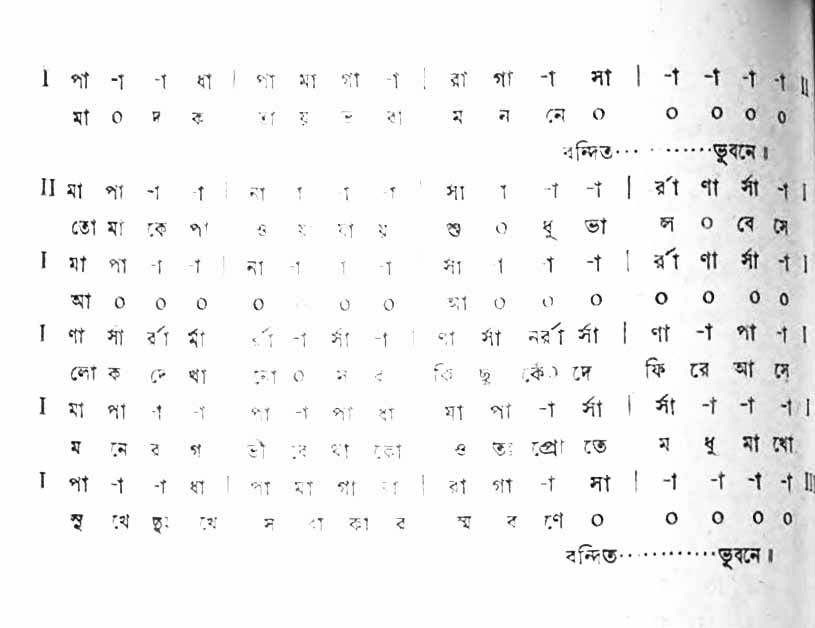 I পা -া -া ধা | পা মা গা -া | রা গা -া সা | -া -া -া -া II
মা ০ দ ক তা য় ভ রা ম ন নে ০ ০ ০ ০ ০
বন্দিত············ভুবনে॥
II মা পা -া -া | না -া -া -া র্সা -া -া -া | র্রা ণা র্সা -া I
তো মা কে পা ও য় যা য় শু ০ ধু ভা ল ০ বে সে
I মা পা -া -া | না -া -া -া র্সা -া -া -া | র্রা ণা র্সা -া I
আ ০ ০ ০ ০ ০ ০ আ ০ ০ ০ ০ ০ ০ ০
I ণা র্সা র্রা র্মা র্রা -া র্সা -া | ণা র্সা নর্রা র্সা | ণা -া পা -া I
লো ক দে খা নো ০ স ব কি ছু কেঁ০ দে ফি রে আ সে
I মা পা -া -া পা -া পা ধা মা পা -া র্সা | র্সা -া -া -া I
ম নে র গ ভী রে থা কো ও তঃ প্রো তে ম ধু মা খো
I পা -া -া ধা | পা মা গা -া | রা গা -া সা | -া -া -া -া II
সু খে দুঃ খে স বা কা র স্ম র ণে ০ ০ ০ ০ ০
বন্দিত············ভুবনে॥